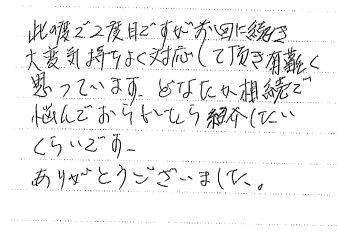 此の度で2度目ですが前回に続き
大変気持ちよく対応して頂き有難く
思っています。どなたか相続で
悩んでおられたら紹介したい
くらいです。
ありがとうございました。